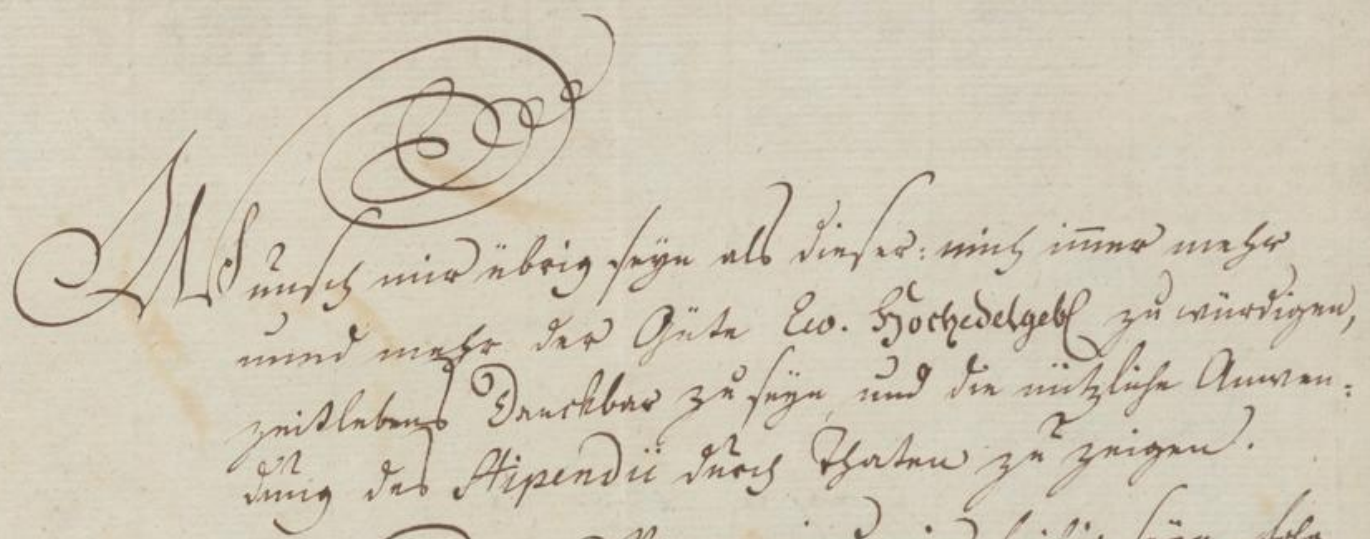 Wunsch mir übrig seyn als dieser: mich im̅er mehr
unnd mehr der Güte Ew. Hochedelgebl zu würdigen,
zeitlebens Danckbar zu seyn und die nützliche Anwen:
dung des Stipendii durch Thaten zu zeigen.